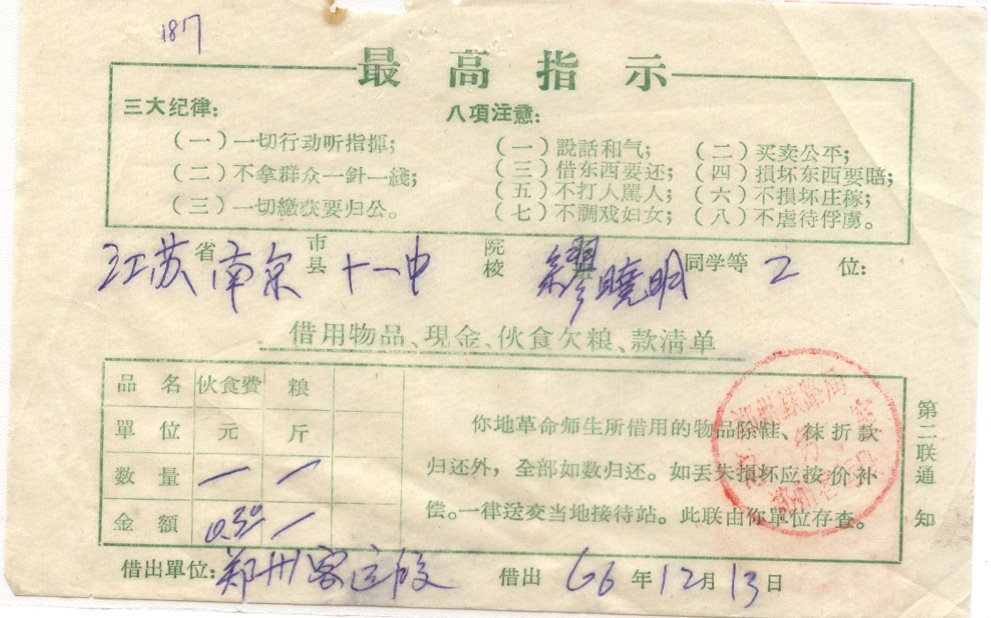 187
最高指示
三大纪律: 八項注意:
(一)一切行动听指揮; (一)説話和气; (二)买卖公平;
(二)不拿群众一針一綫; (三)借东西要还; (四)損坏东西要賠;
(三)一切繳获要归公。 (五)不打人駡人; (六)不損坏庄稼;
(七)不調戏妇女; (八)不虐待俘虏。
江苏省南京市县十一中院校缪曉明同学等2位:
借用物品、現金、伙食欠粮、款清单
品名 伙食費 粮
單位 元 斤
数量 一 一
金額 0.30 一
你地革命师生所借用的物品除鞋、袜折款
归还外,全部如数归还。如丢失損坏应按价补
偿。一律送交当地接待站。此联由你單位存查。
第二联通知
郑州鉄路局
借出單位:郑州客运段 借出 66年12月13日